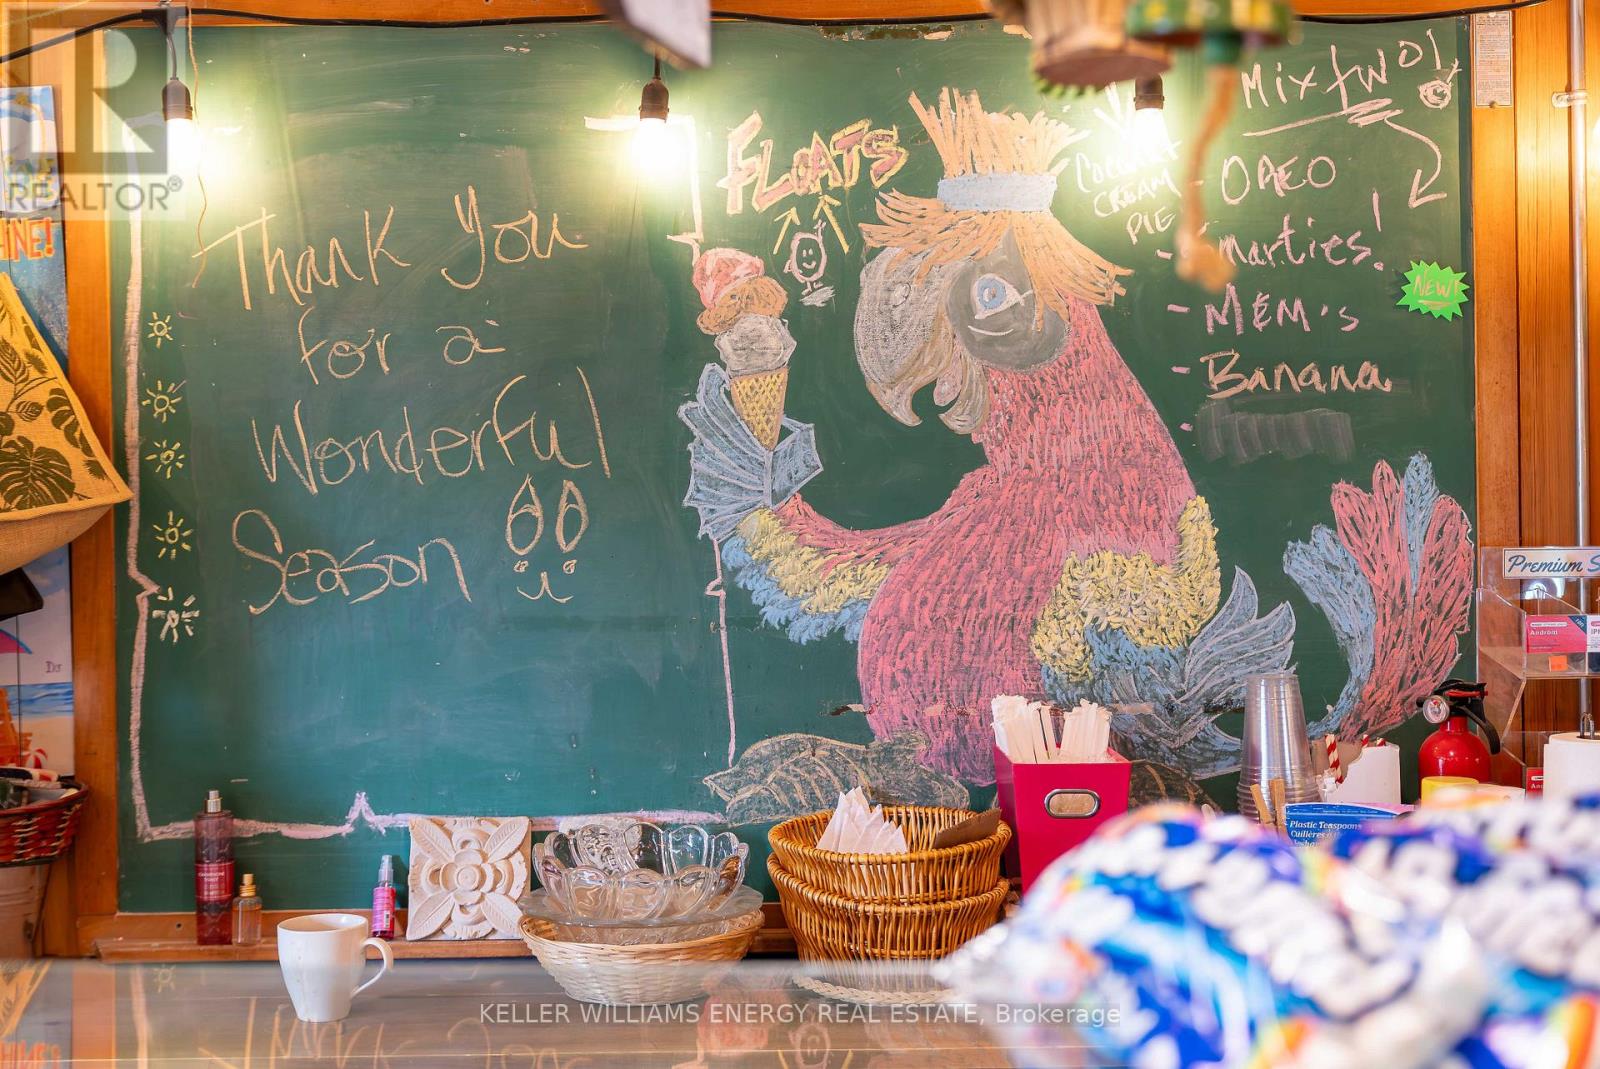 REALTOR®
HINE!
Thank You
for a
Wonderful
Season
FLOATS
Coconut
CREAM
PIE
Mix two!
- OREO
- Smarties!
- M&M's
- Banana
NEW!
Premium S
Android
Plastic Teaspoons
KELLER WILLIAMS ENERGY REAL ESTATE, Brokerage